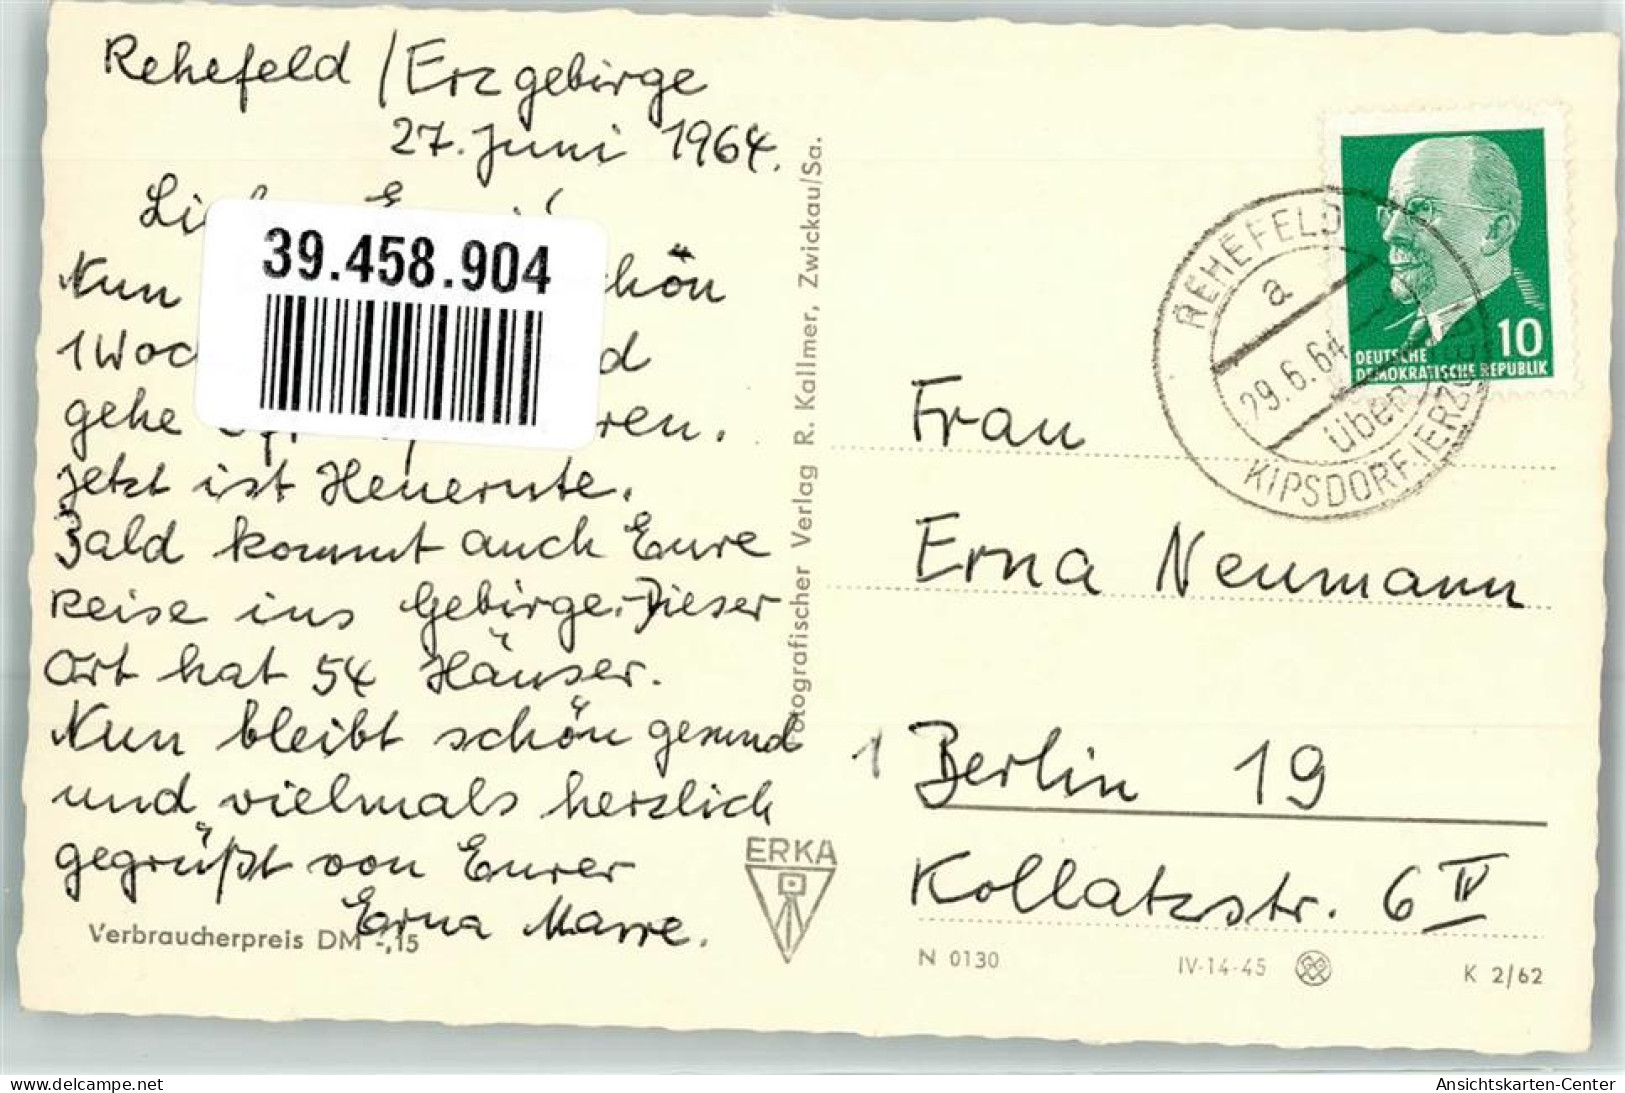 Rehefeld / Erzgebirge
27. Juni 1964.
39.458.904
Nun
schön
gehe
Jetzt ist Heuernte.
Bald kommt auch Eure
Reise ins Gebirge. Dieser
Ort hat 54 Häuser.
Nun bleibt schön gesund
und vielmals herzlich
gegrüßt von Eurer
Erna Marre.
Verbraucherpreis DM -,15
Fotografischer Verlag R. Kallmer, Zwickau/Sa.
ERKA
REHEFELD
a
29.6.64
über
KIPSDORF (ERZGEB)
10
DEUTSCHE
DEMOKRATISCHE REPUBLIK
Frau
Erna Neumann
1 Berlin 19
Kollatzstr. 6 IV
N 0130
IV-14-45
K 2/62
www.delcampe.net
Ansichtskarten-Center